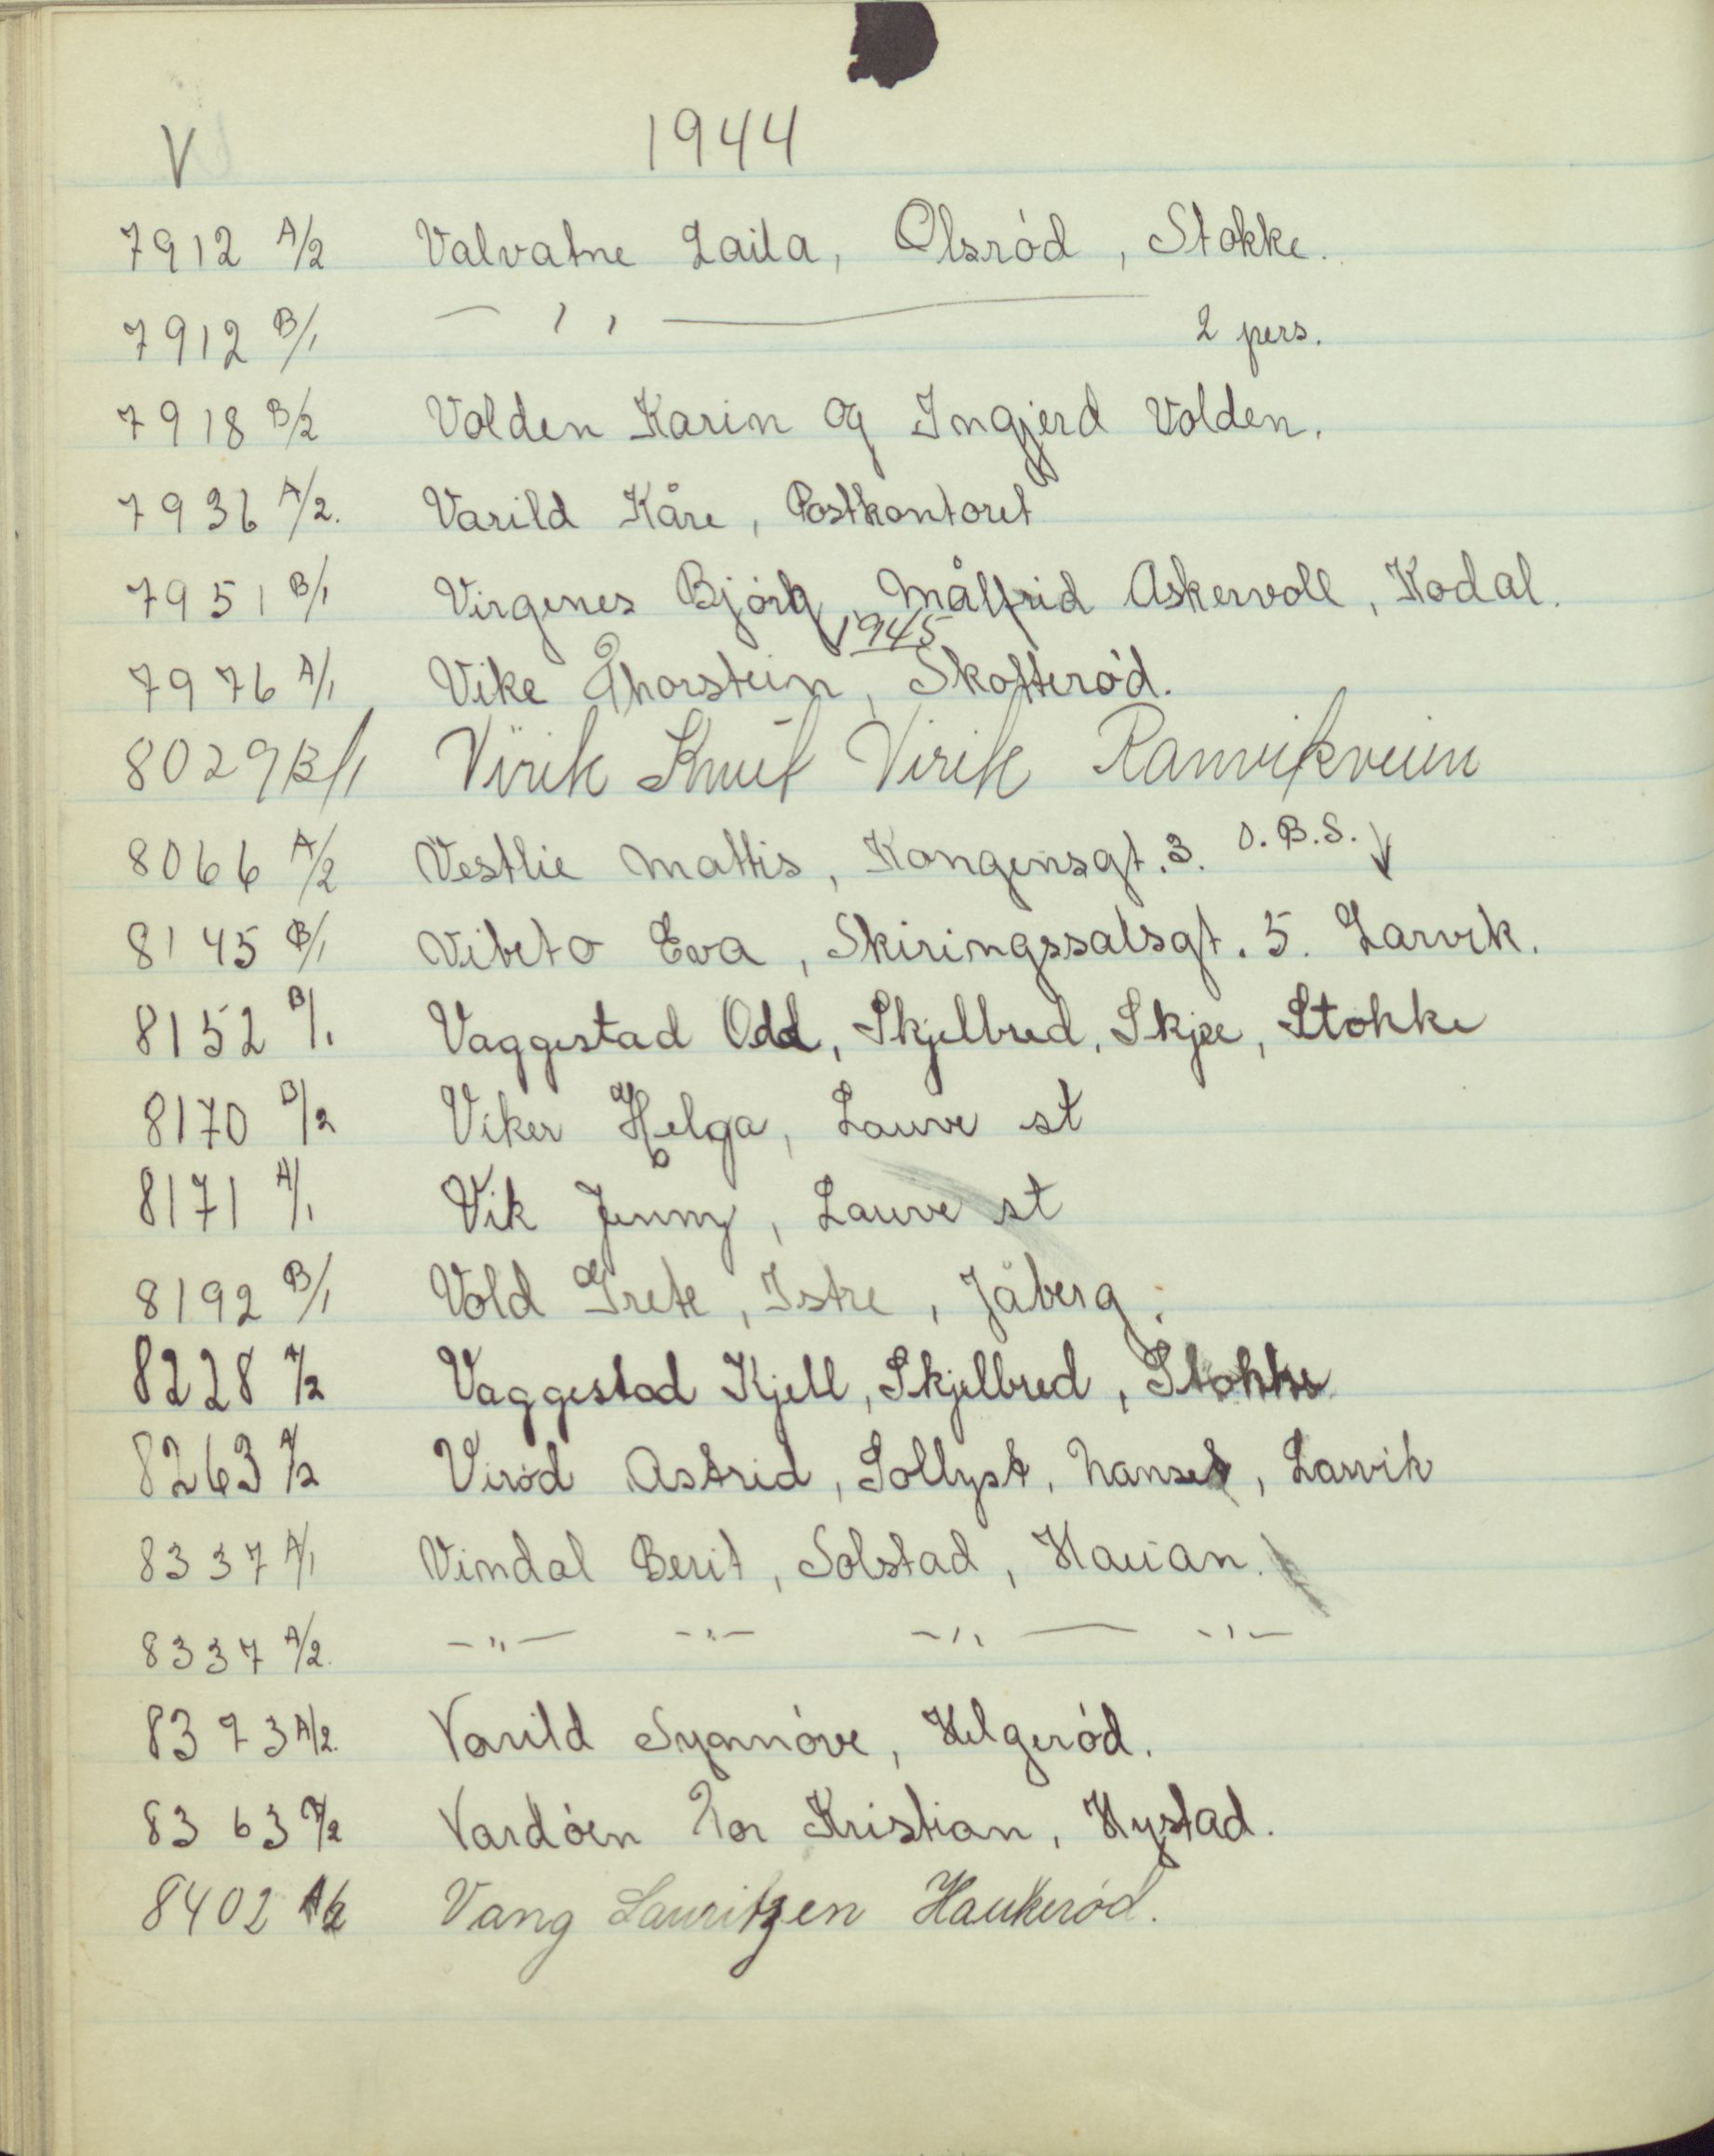 V 1944
7912 A/2 Valvatne Laila, Olsród, Stokke.
7912 B/1 — " — 2 pers.
7918 B/2 Volden Karin og Ingjerd Volden.
7936 A/2. Varild Kåre, Postkontoret
7951 B/1 Virgenes Bjórg, Målfrid Askervoll, Kodal.
1945
7976 A/1 Vike Thorstein, Skofteród.
8029 B/1 Virik Knut Virik Ranvikveien
8066 A/2 Vestlie Mattis, Kongensgt. 3. O.B.S.
8145 B/1 Vibeto Eva, Skiringssalsgt. 5. Larvik.
8152 B/1 Vaggestad Odd, Skjelbred, Skjee, Stokke
8170 B/2 Viker Helga, Lauve st
8171 A/1 Vik Jenny, Lauve st
8192 B/1 Vold Grete, Istre, Jåberg.
8228 A/2 Vaggestad Kjell, Skjelbred, Stokke
8263 A/2 Viród Astrid, Sollyst, Nanset, Larvik
8337 A/1 Vindal Berit, Solstad, Hauan.
8337 A/2. — " — — " — — " — — " —
8373 A/2. Varild Synnóve, Helgeród.
8363 A/2 Vardóen Tor Kristian, Hystad.
8402 A/2 Vang Lauritzen Haukeród.